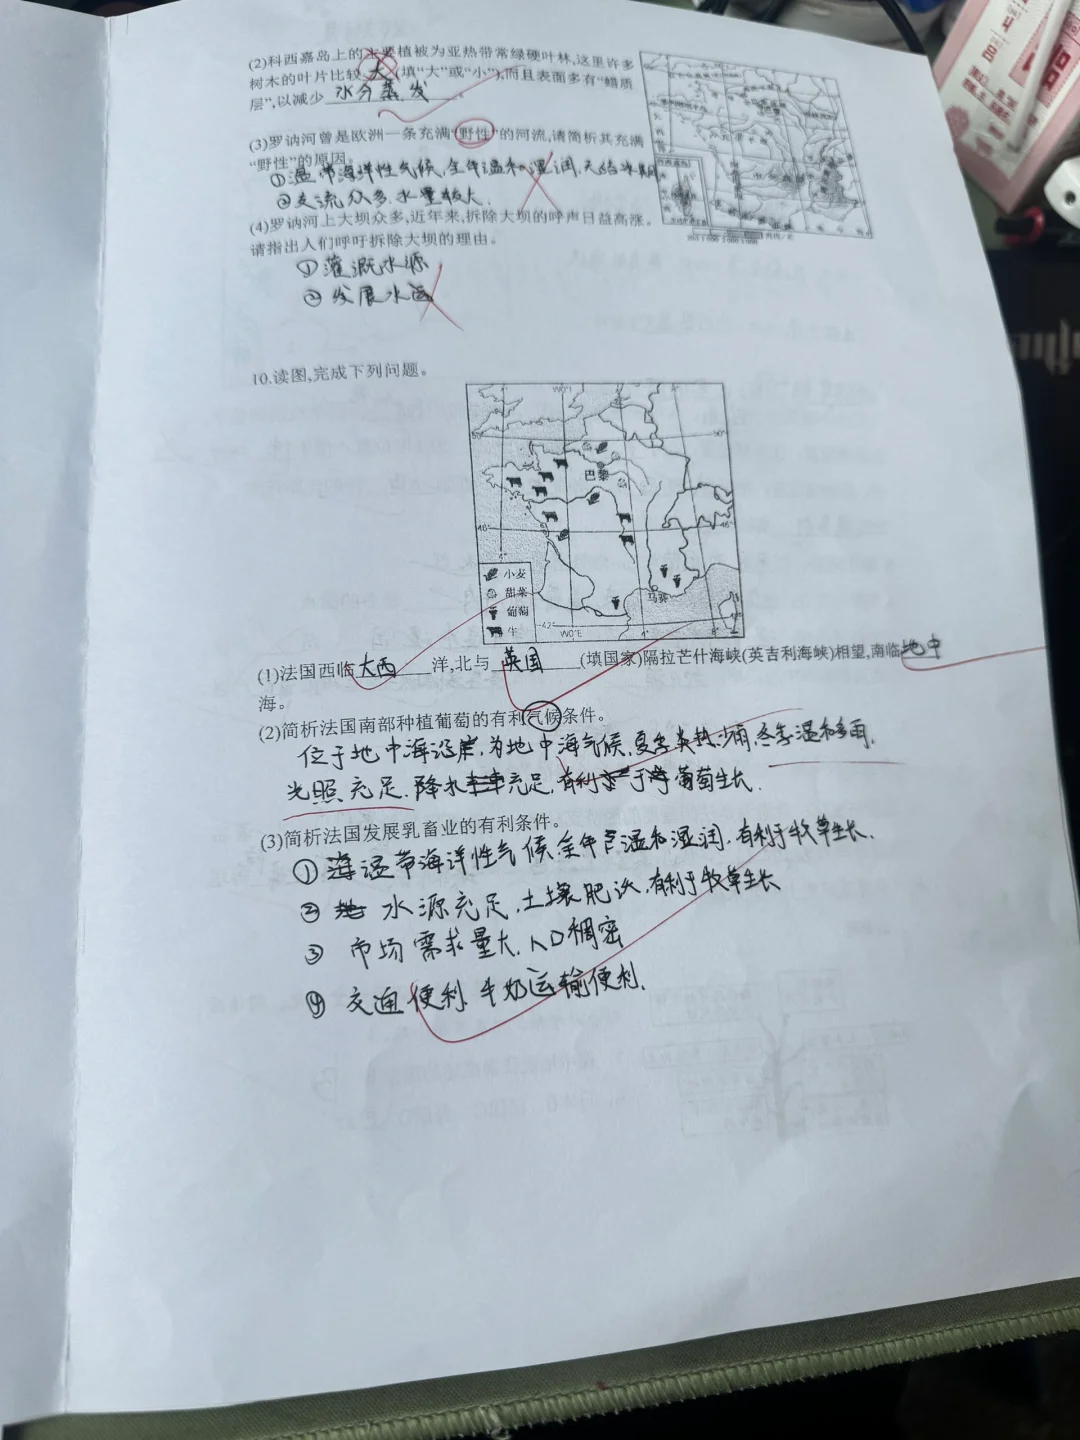 (2)科西嘉岛上的主要植被为亚热带常绿硬叶林,这里许多
树木的叶片比较 大 (填“大”或“小”),而且表面多有“蜡质
层”,以减少 水分蒸发 。
(3)罗讷河曾是欧洲一条充满“野性”的河流,请简析其充满
“野性”的原因。
①温带海洋性气候,全年温和湿润,无结冰期
②支流众多,水量较大.
(4)罗讷河上大坝众多,近年来,拆除大坝的呼声日益高涨。
请指出人们呼吁拆除大坝的理由。
①灌溉水源
②发展水运
10.读图,完成下列问题。
巴黎
马赛
小麦
甜菜
葡萄
牛
(1)法国西临 大西 洋,北与 英国 (填国家)隔拉芒什海峡(英吉利海峡)相望,南临 地中
海。
(2)简析法国南部种植葡萄的有利气候条件。
位于地中海沿岸,为地中海气候,夏季炎热少雨,冬季温和多雨,
光照充足.降水充足,有利于葡萄生长.
(3)简析法国发展乳畜业的有利条件。
①温带海洋性气候,全年温和湿润,有利于牧草生长.
② 水源充足,土壤肥沃,有利于牧草生长
③ 市场需求量大,人口稠密
④ 交通便利,牛奶运输便利.